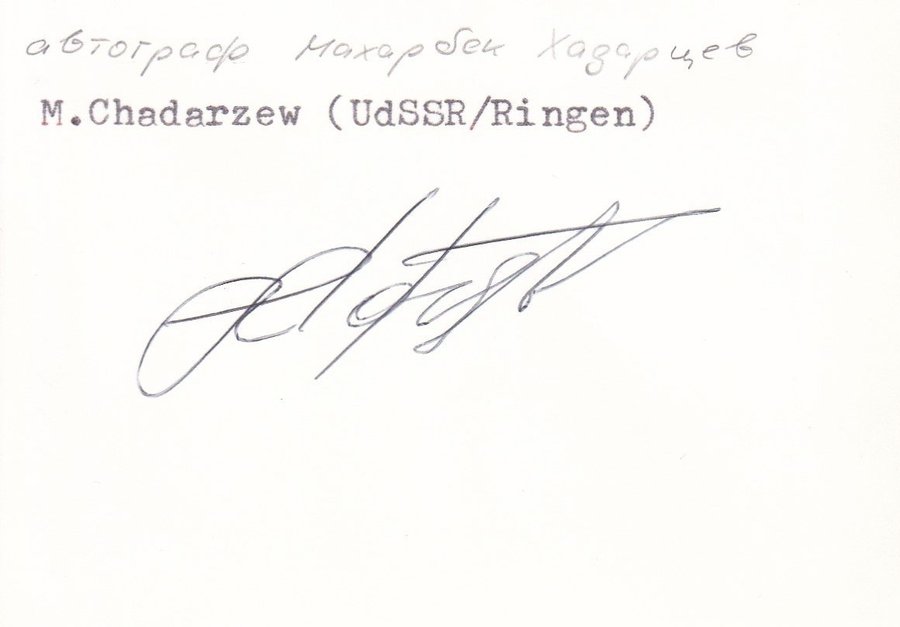 автограф Махарбек Хадарцев
M.Chadarzew (UdSSR/Ringen)